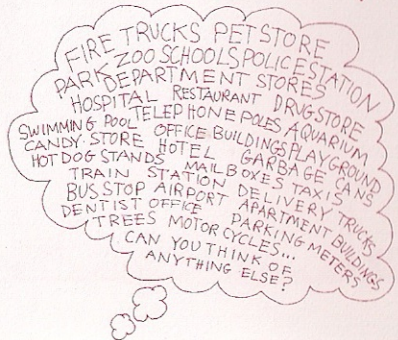 FIRE TRUCKS PET STORE
ZOO SCHOOLS POLICE STATION
PARK DEPARTMENT STORES
HOSPITAL RESTAURANT DRUGSTORE
SWIMMING POOL TELEPHONE POLES AQUARIUM
CANDY STORE OFFICE BUILDINGS PLAYGROUND
HOT DOG STANDS HOTEL GARBAGE CANS
MAILBOXES TAXIS
TRAIN STATION DELIVERY TRUCKS
BUS STOP AIRPORT APARTMENT BUILDINGS
DENTIST OFFICE PARKING METERS
TREES MOTORCYCLES...
CAN YOU THINK OF
ANYTHING ELSE?